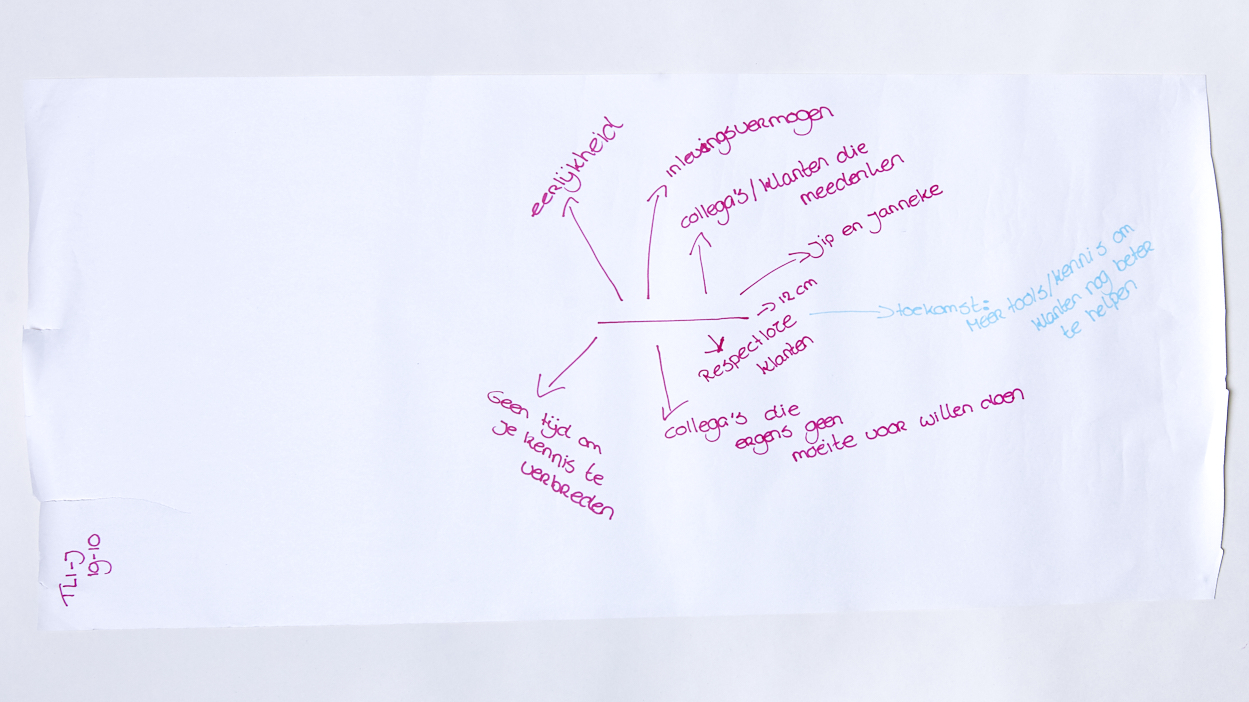 eerlijkheid
inlevingsvermogen
collega's/klanten die
meedenken
Jip en Janneke
→ 12 cm
Respectloze
klanten
toekomst:
Meer tools/kennis om
klanten nog beter
te helpen
Geen tijd om
je kennis te
verbreden
collega's die
ergens geen
moeite voor willen doen
TL1-J
19-10